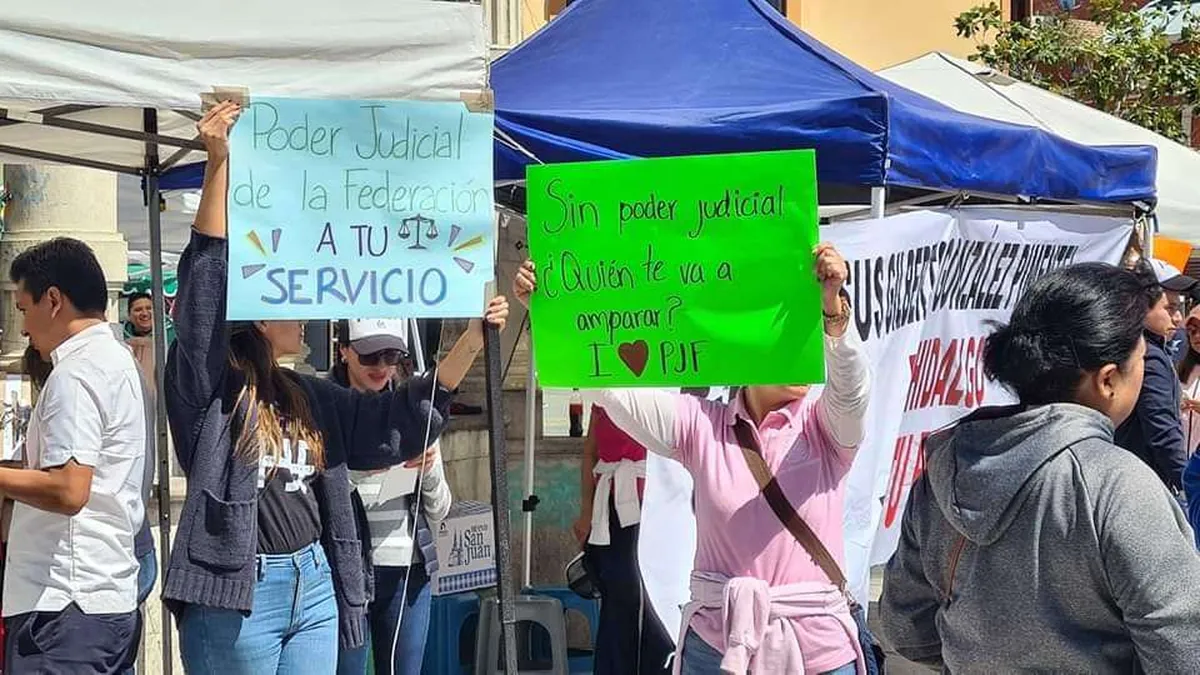 Poder Judicial
de la Federación
A TU
SERVICIO
Sin poder judicial
¿Quién te va a
amparar?
I ❤ PJF
GONZÁLEZ
HIDALGO
San
Juan